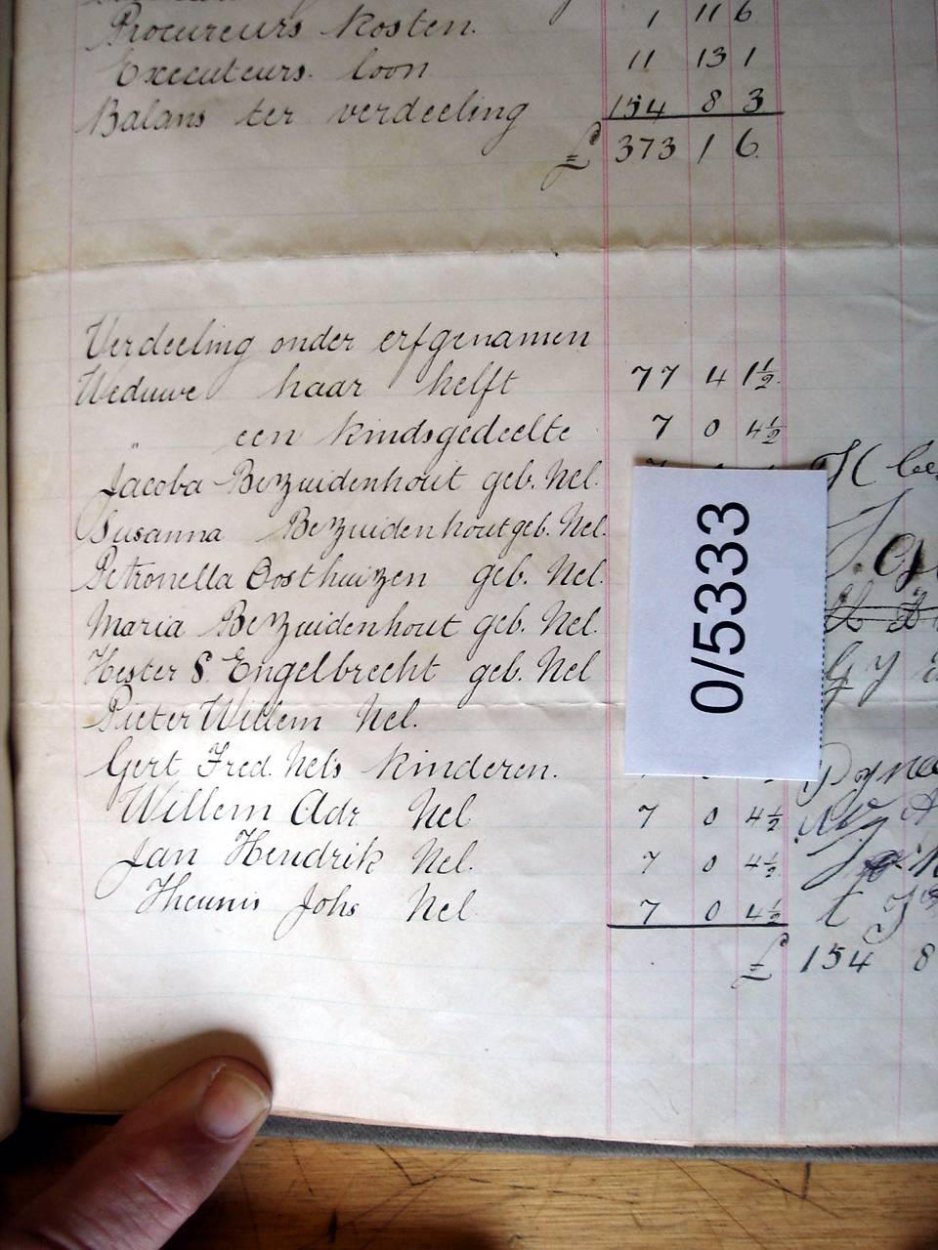 Procureurs kosten. 1 11 6
Executeurs. loon 11 13 1
Balans ter verdeeling 154 8 3
£ 373 1 6.
Verdeeling onder erfgenamen
Weduwe haar helft 77 4 1½
" een kindsgedeelte 7 0 4½
Jacoba Bezuidenhout geb. Nel.
Susanna Bezuidenhout geb. Nel.
Petronella Oosthuizen geb. Nel.
Maria Bezuidenhout geb. Nel.
Hester S. Engelbrecht geb. Nel
Pieter Willem Nel.
Gert Fred. Nels kinderen.
Willem Adr Nel 7 0 4½
Jan Hendrik Nel. 7 0 4½
Theunis Johs Nel 7 0 4½
£ 154 8
0/5333